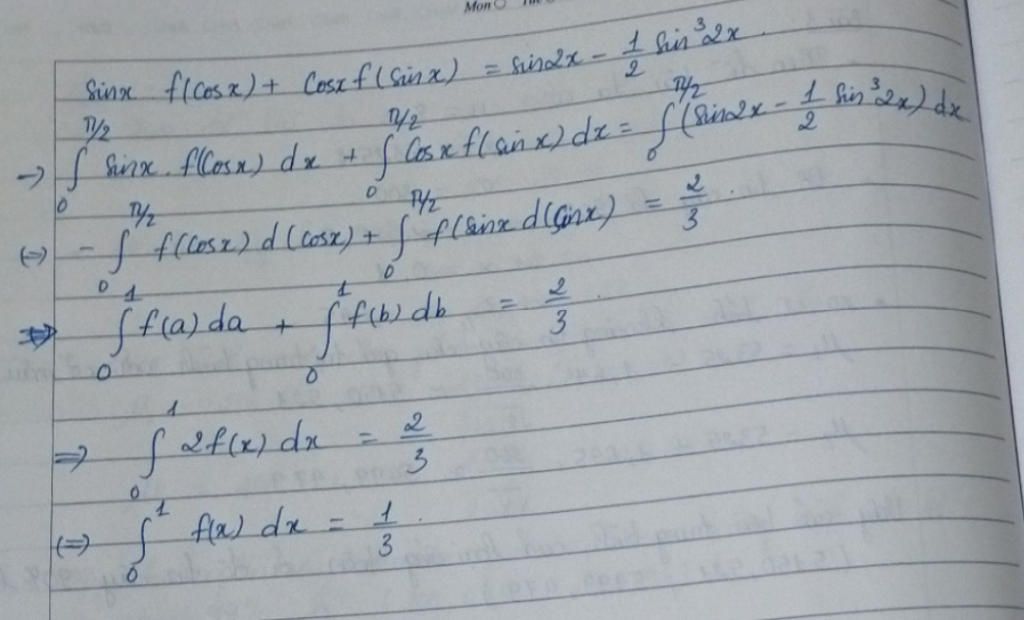 Mon
sinx f(cosx) + cosx f(sinx) = sin2x - 1/2 sin³2x.
→ ∫₀^{π/2} sinx. f(cosx) dx + ∫₀^{π/2} cosx f(sinx) dx = ∫₀^{π/2} (sin2x - 1/2 sin³2x) dx
(=) - ∫₀^{π/2} f(cosx) d(cosx) + ∫₀^{π/2} f(sinx d(sinx) = 2/3.
∫₀¹ f(a) da + ∫₀¹ f(b) db = 2/3.
=> ∫₀¹ 2f(x) dx = 2/3
(=) ∫₀¹ f(x) dx = 1/3.